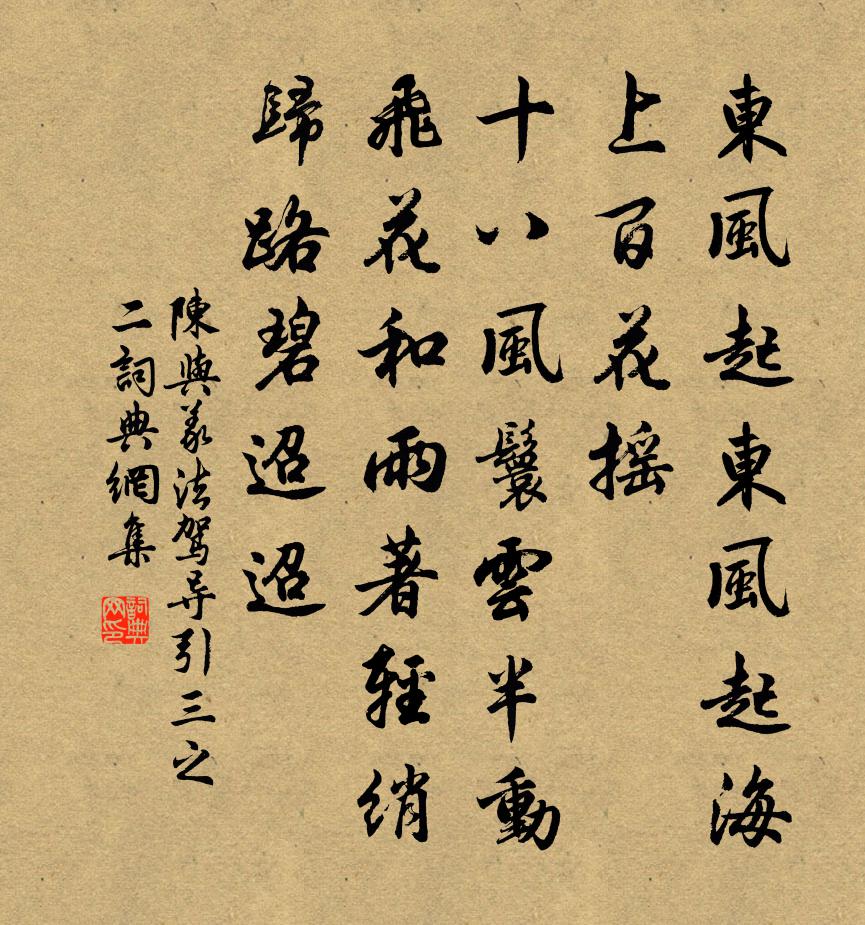 東風起東風起海
上百花摇
十八風鬟雲半動
飛花和雨著輕綃
歸路碧迢迢
陳與義法驾导引三之
二詞典網集
詞典网印